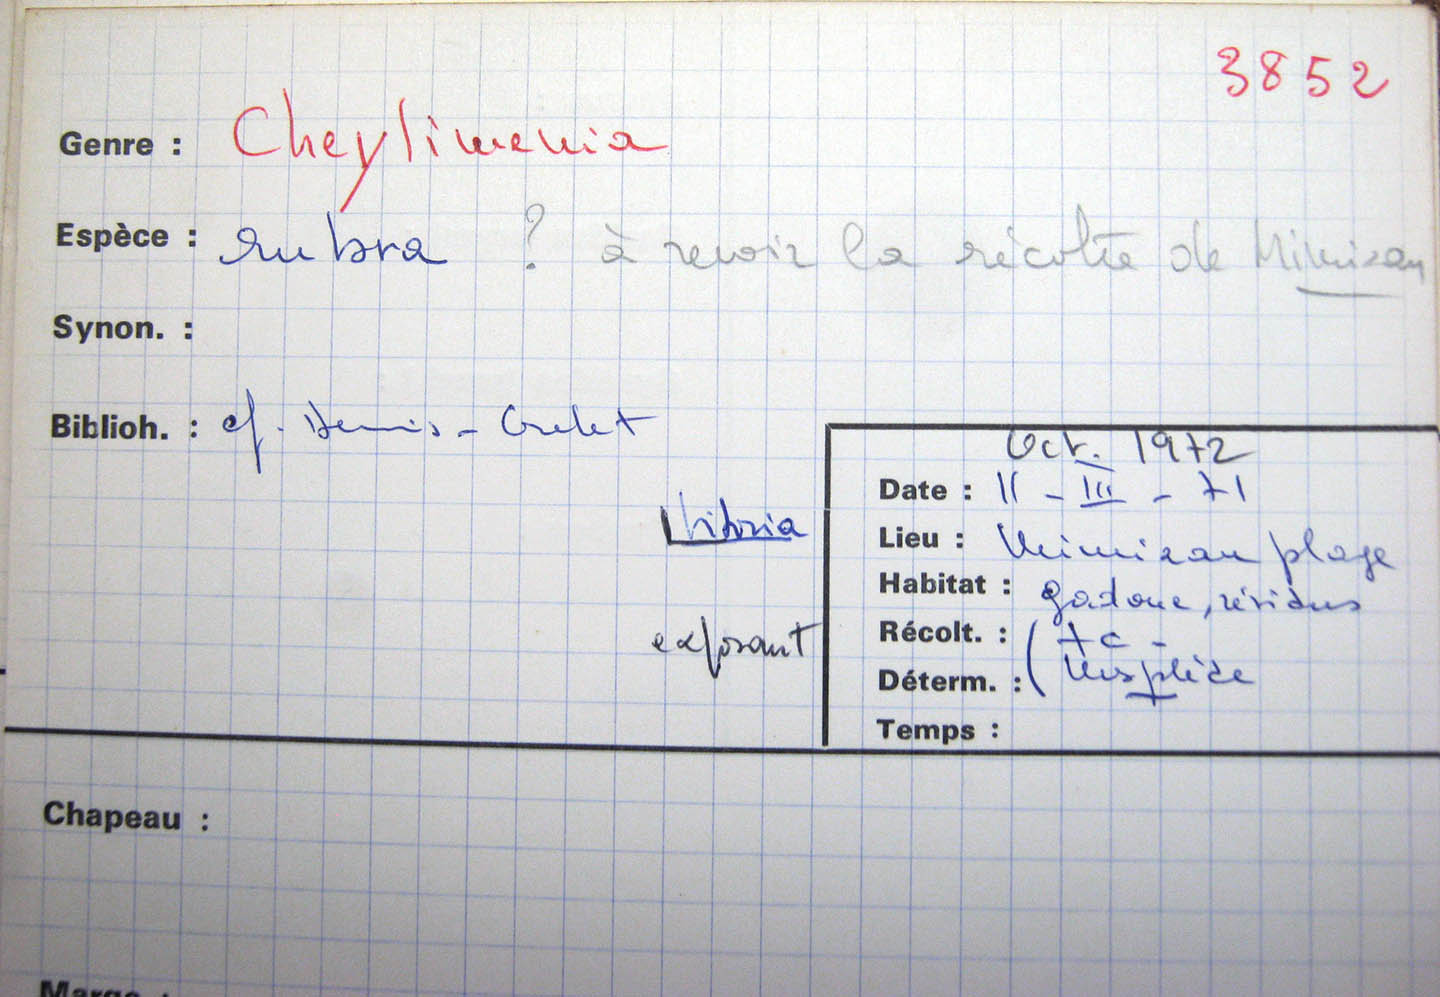 3852
Genre : Cheylimenia
Espèce : rubra ? à revoir la récolte de Mimizan
Synon. :
Biblioh. : cf. Dennis - Grelet
Oct. 1972
Date : 11 - III - 71
Lieu : Mimizan plage
Habitat : gadoue, résidus
exposant
Récolt. :
Déterm. :
Temps :
Chapeau :
Marge :